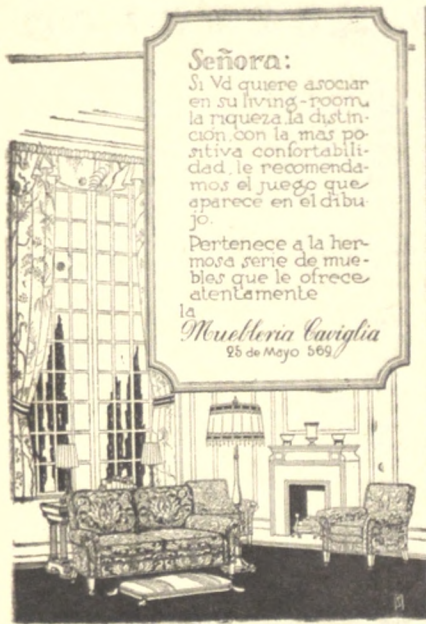 Señora:
Si Vd quiere asociar
en su living-room,
la riqueza, la distin-
ción, con la mas po-
sitiva confortabili-
dad, le recomenda-
mos el juego que
aparece en el dibu-
jo.
Pertenece a la her-
mosa serie de mue-
bles que le ofrece
atentamente
la
Mueblería Caviglia
25 de Mayo 569